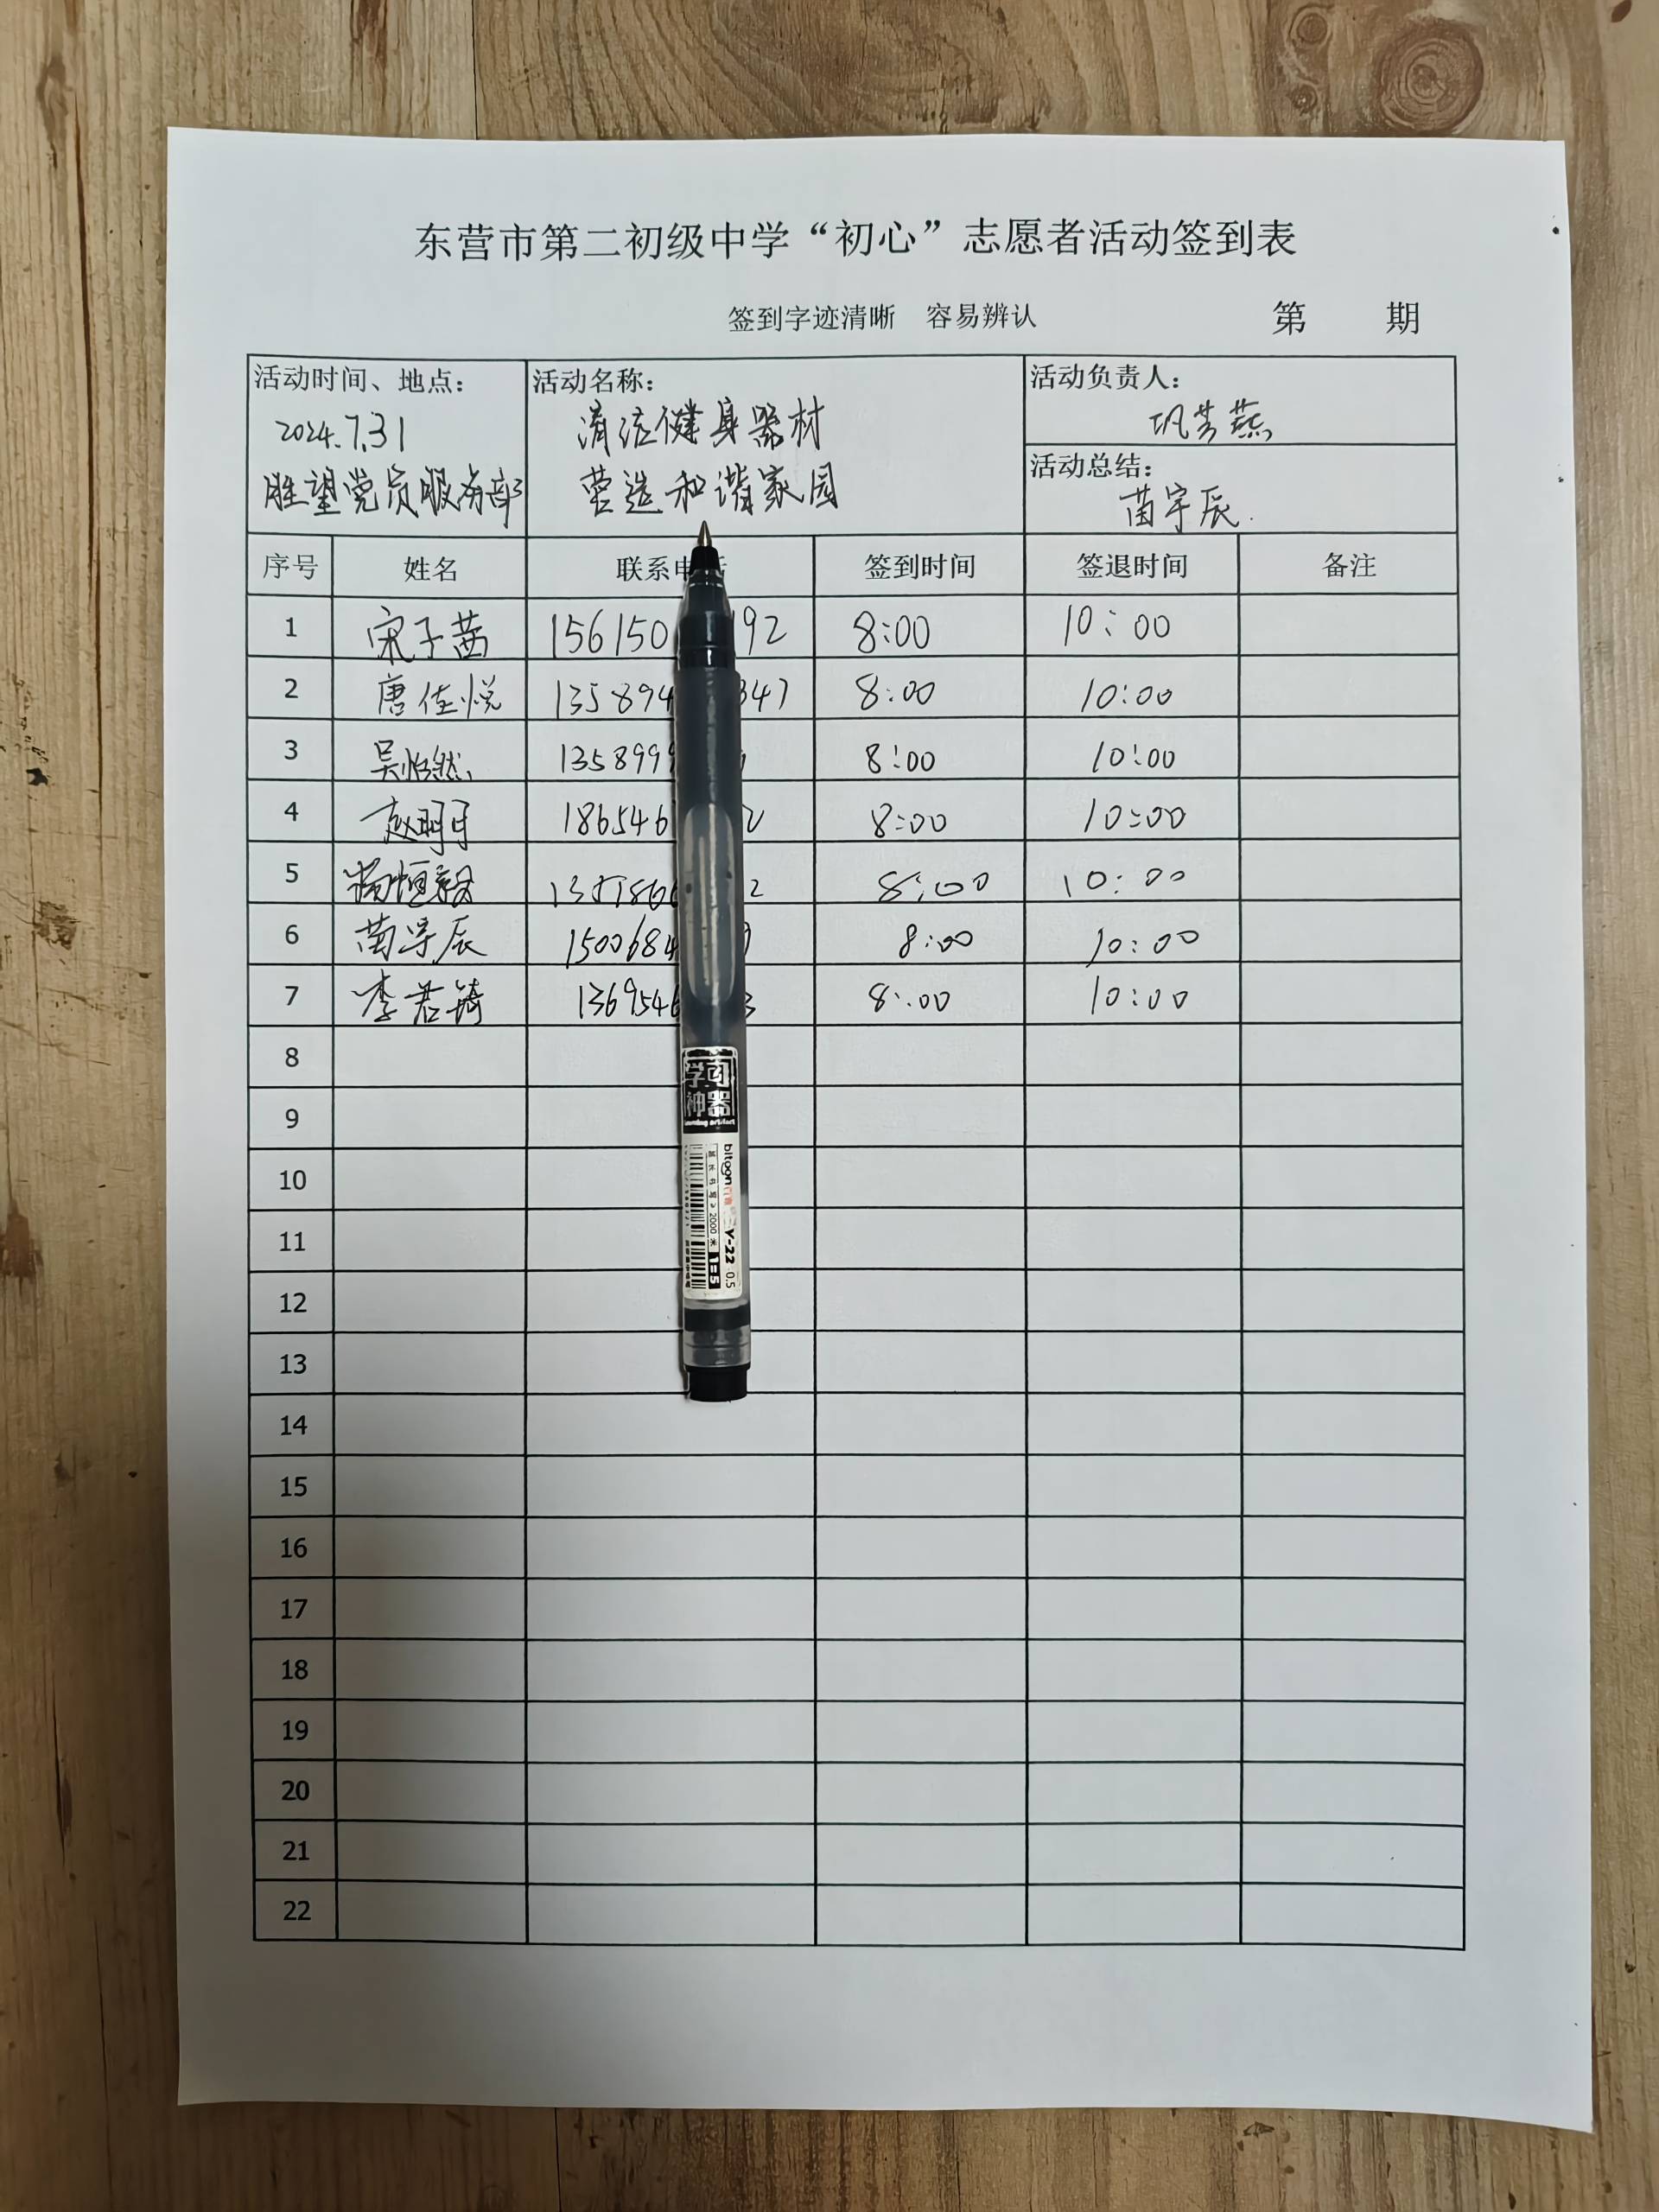 东营市第二初级中学“初心”志愿者活动签到表
签到字迹清晰 容易辨认 第 期
活动时间、地点：
2024.7.31
胜望党员服务部
活动名称：
清洁健身器材
营造和谐家园
活动负责人：
巩芳燕
活动总结：
苗宇辰.
序号 姓名 联系电 签到时间 签退时间 备注
1 宋子茜 156150 92 8:00 10:00
2 唐佳悦 135894 347 8:00 10:00
3 吴怡然 1358999 8:00 10:00
4 赵明月 186546 2 8:00 10:00
5 杨恒毅 135186 2 8:00 10:00
6 苗宇辰 1500684 8:00 10:00
7 李君锜 1369546 3 8:00 10:00
8
9
10
11
12
13
14
15
16
17
18
19
20
21
22
学习
神器
bitoon
Y-22 0.5
2000米
1=5